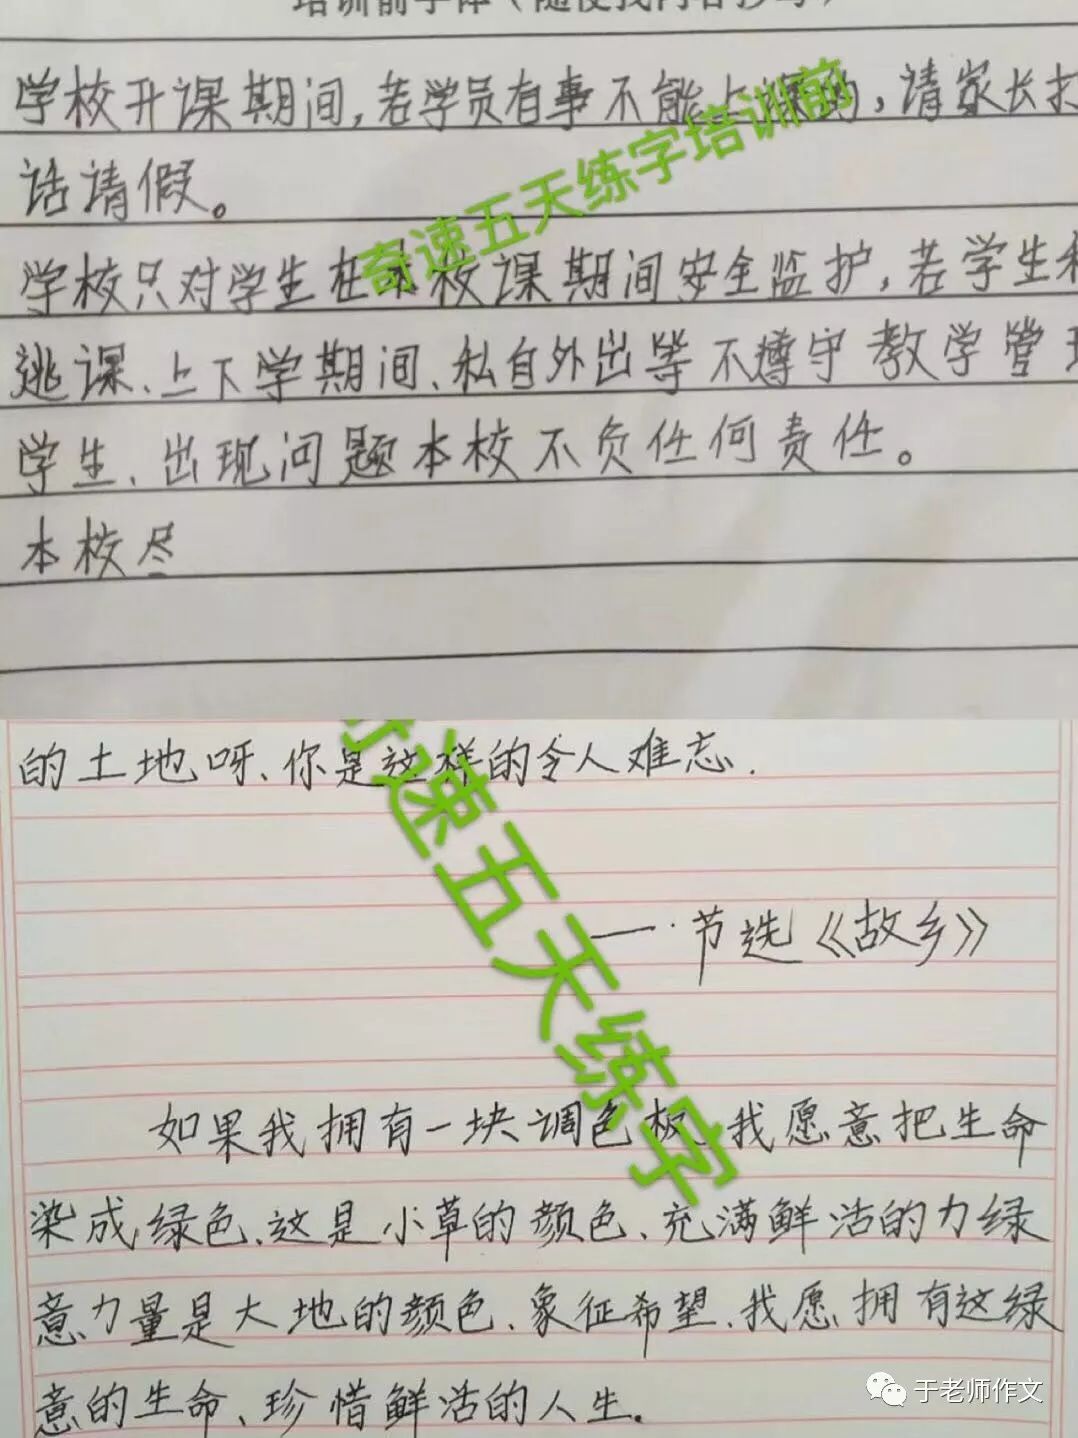 培训前字体（随便找内容抄写）
学校开课期间,若学员有事不能上课的,请家长打
话请假。
学校只对学生在本校课期间安全监护,若学生私
逃课、上下学期间、私自外出等不遵守教学管理
学生、出现问题本校不负任何责任。
本校尽
奇速五天练字培训前
的土地呀、你是这样的令人难忘.
一·节选《故乡》
如果我拥有一块调色板、我愿意把生命
染成绿色、这是小草的颜色、充满鲜活的力绿
意力量是大地的颜色、象征希望、我愿拥有这绿
意的生命、珍惜鲜活的人生.
奇速五天练字
于老师作文